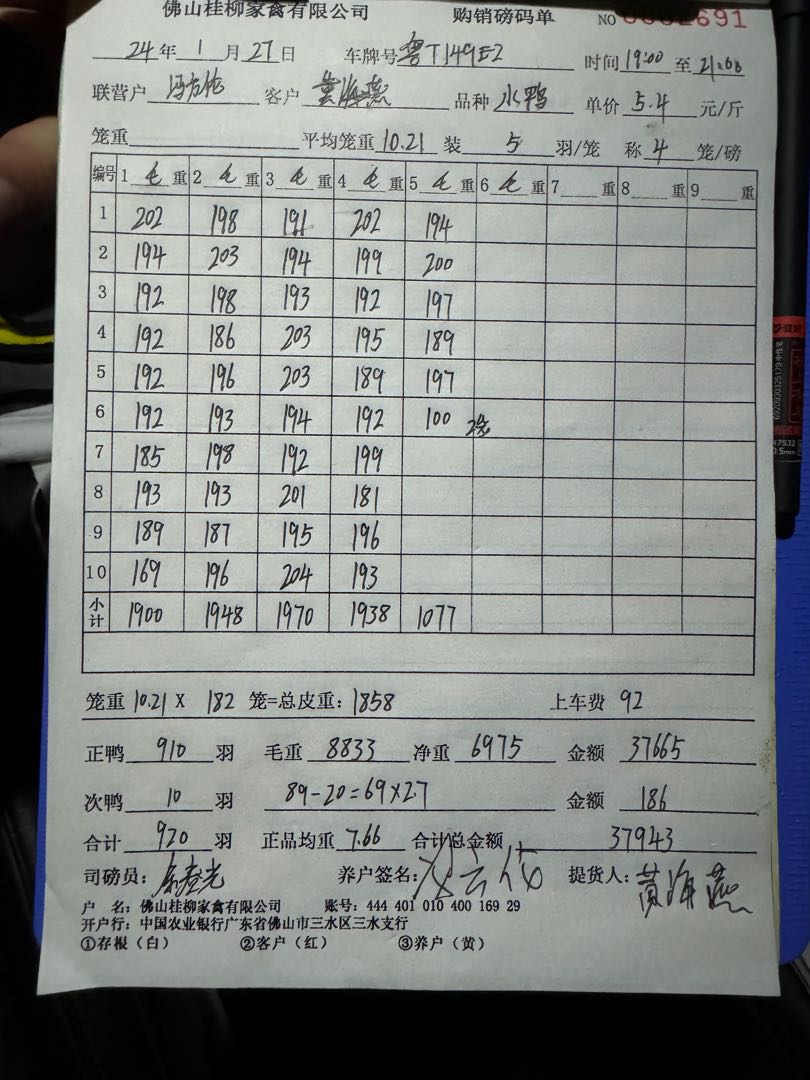 佛山桂柳家禽有限公司 购销磅码单 NO 0002691
24年 1月27日 车牌号 鲁T149E2 时间 19:00 至 21:00
联营户 冯云伦 客户 黄海燕 品种 水鸭 单价 5.4 元/斤
笼重 平均笼重 10.21 装 5 羽/笼 称 4 笼/磅
编号 1 毛 重 2 毛 重 3 毛 重 4 毛 重 5 毛 重 6 毛 重 7 重 8 重 9 重
1 202 198 191 202 194
2 194 203 194 199 200
3 192 198 193 192 197
4 192 186 203 195 189
5 192 196 203 189 197
6 192 193 194 192 100 2笼
7 185 198 192 199
8 193 193 201 181
9 189 187 195 196
10 169 196 204 193
小计 1900 1948 1970 1938 1077
笼重 10.21 X 182 笼=总皮重: 1858 上车费 92
正鸭 910 羽 毛重 8833 净重 6975 金额 37665
次鸭 10 羽 89-20=69×2.7 金额 186
合计 920 羽 正品均重 7.66 合计总金额 37943
司磅员: 养户签名: 提货人: 黄海燕
户 名: 佛山桂柳家禽有限公司 账号: 444 401 010 400 169 29
开户行: 中国农业银行广东省佛山市三水区三水支行
①存根(白) ②客户(红) ③养户(黄)